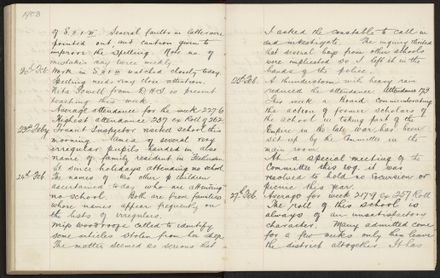 1903
of S.2 & III. Several faults in letters were
pointed out, and caution given to
improve the spelling. Note no. of
mistakes any twice weekly.
Work in S.1 & II watched closely today.
Spelling needs very close attention.
Rita Powell from D.H.S is present
teaching this week.
Average attendance for the week 227.6
Highest attendance 237 ex Roll of 262
23rd Feby Truant Inspector visited school this
morning. Names of several very
irregular pupils handed in also
name of family resident in
St since holidays attending no school.
24th Feb The names of 6 other children
ascertained today who are attending
no school. Both are from families
whose names appear frequently on
the lists of irregulars.
Miss Woodrooffe called to identify
some articles stolen from her
The matter seemed so serious that
I asked the constable to call in
and investigate. The enquiry showed
that several boys from other schools
were implicated so I left it in the
hands of the police.
Feb. A thunderstorm with heavy rain
reduced the attendance. Attendance 172
This week a board commemorating
the action of former scholars of
the school in taking part of the
Empire in the late war, has been
set up by the Committee in the
main room
At a special meeting of the
Committee this evg. it was
resolved to hold no excursion or
picnic this year.
27th Feb. Average for week 217.9 ex 257 Roll
The roll of this school is
always of an unsatisfactory
character. Many admitted come
for a few weeks only then leave
the district altogether. It has